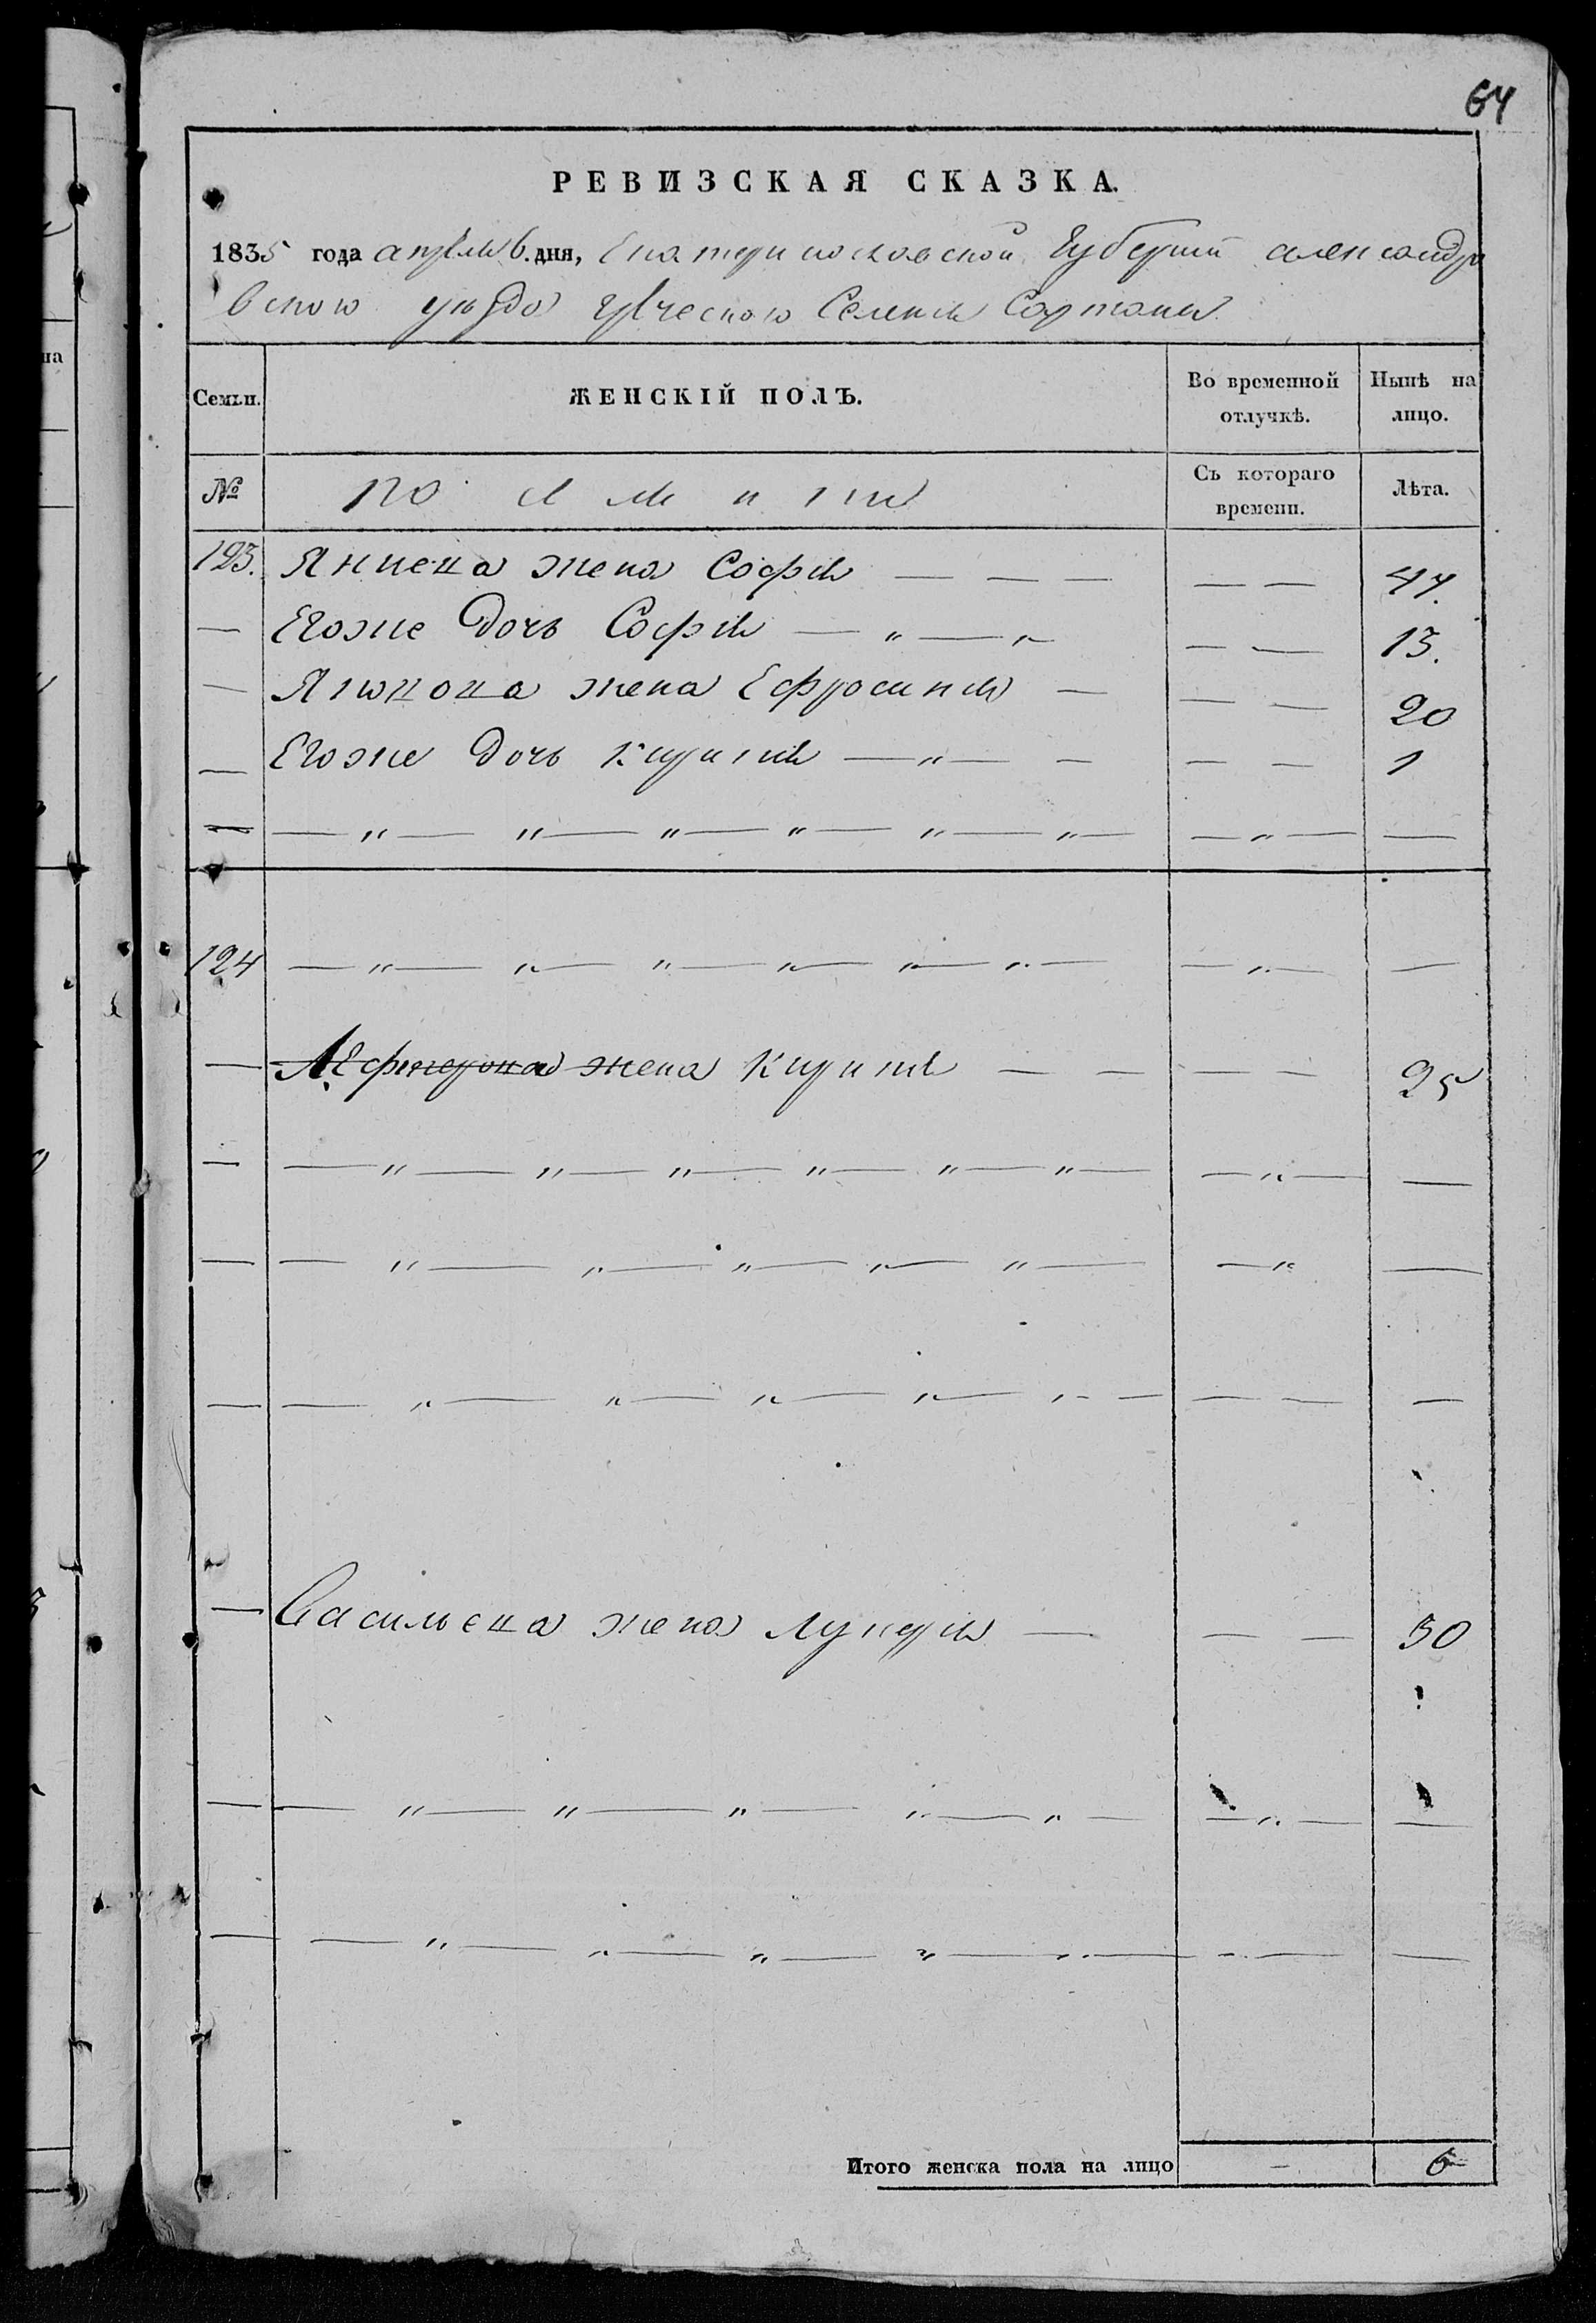 64
РЕВИЗСКАЯ СКАЗКА.
1835 года апреля 6. дня, Екатеринославской Губернии александро
вского уезда греческого Селения Сартаны
Семьи. ЖЕНСКІЙ ПОЛЪ. Во временной отлучкѣ. Нынѣ на лицо.
№ Съ котораго времени. Лѣта.
123. Яниева жена Софія — — — — — 47.
— Егоже дочь Софія — „ — „ — — 13.
— жена Ефросинія — — — 20
— Егоже дочь Кирикія — „ — — — — 1
— — „ — „ — „ — „ — „ — „ — — „ — —
124 — „ — „ — „ — „ — „ — „ — — „ — —
— жена Кирикія — — — — 25
— — „ — „ — „ — „ — „ — „ — — „ — —
— — „ — „ — „ — „ — „ — — „ —
— — „ — „ — „ — „ — „ — — — — —
— Васильева жена Лукерія — — — 50
— — „ — „ — „ — „ — „ — — „ — —
— — „ — „ — „ — „ — „ — „ — —
Итого женска пола на лицо — 6